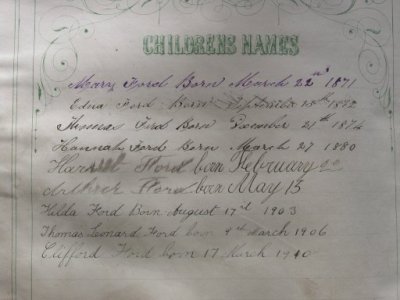 CHILDRENS NAMES
Mary Ford Born March 22nd 1871
Edna Ford Born September 1882
Thomas Ford Born December 21st 1874
Hannah Ford Born March 27 1880
Ford born February 22
Ford born May 15
Hilda Ford Born August 17th 1903
Thomas Leonard Ford born 9th March 1906
Clifford Ford born 17 March 1910